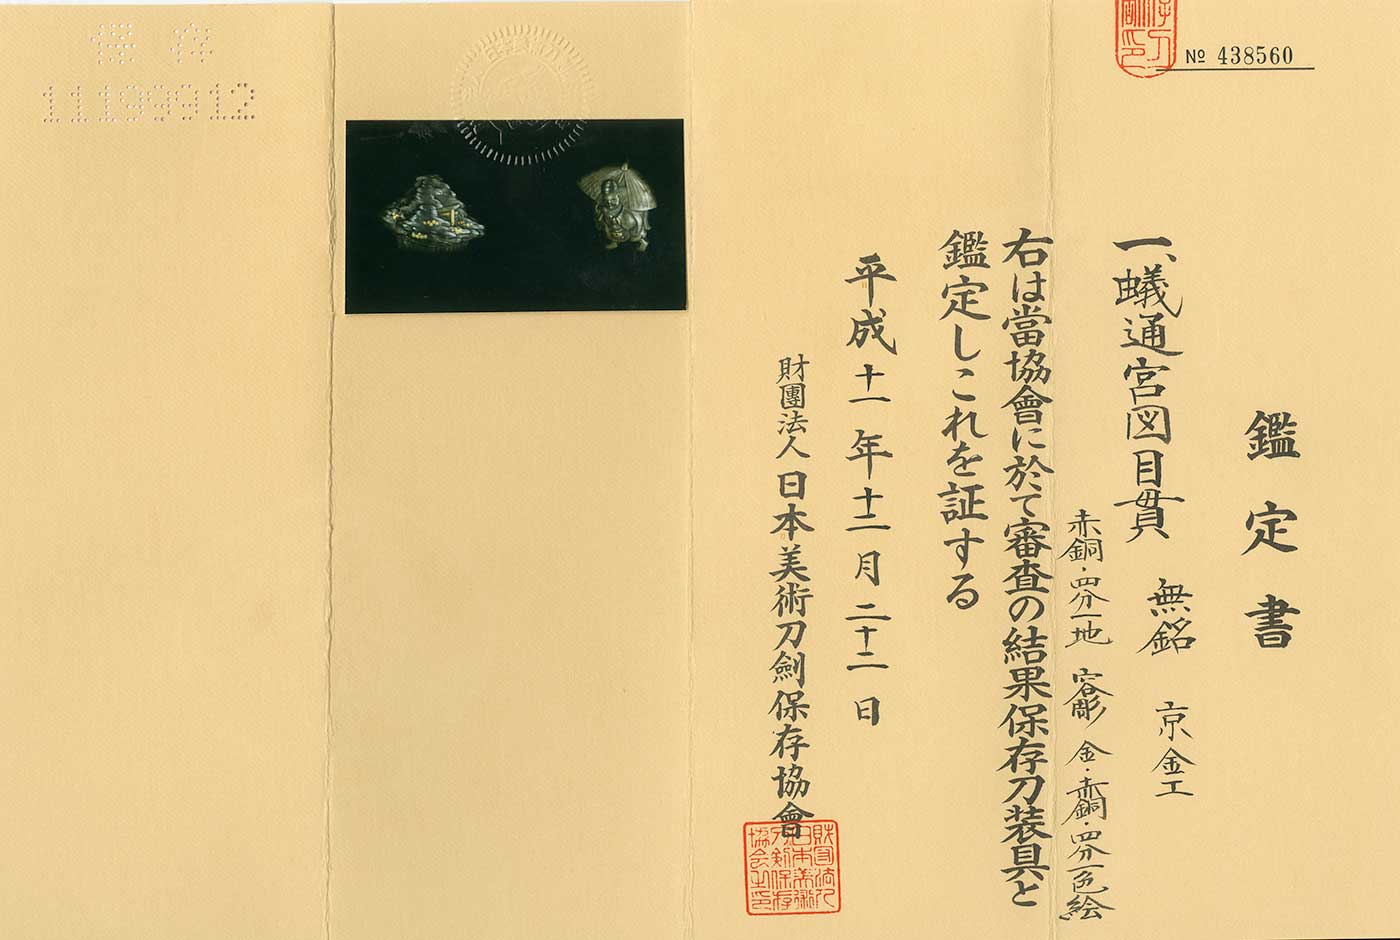 鑑定書
一、蟻通宮図目貫 無銘 京金工
赤銅・四分一地 容彫 金・赤銅・四分一色絵
右は當協會に於て審査の結果保存刀装具と
鑑定しこれを証する
平成十一年十二月二十二日
財團法人日本美術刀劍保存協會
№ 438560
保存
11199912